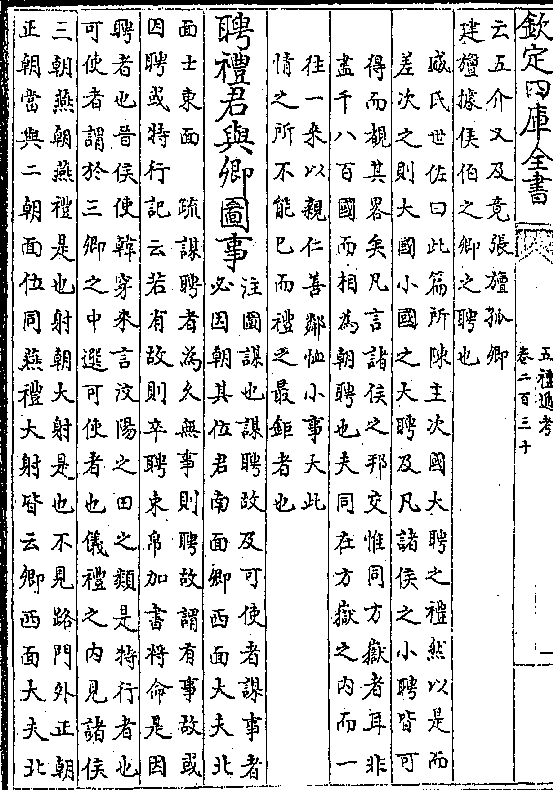 欽定四庫全書
五禮通考
卷二百三十
云五介又及竟張旜孤卿
建旜據侯伯之卿之聘也
盛氏世佐曰此篇所陳主次國大聘之禮然以是而
差次之則大國小國之大聘及凡諸侯之小聘皆可
得而覩其畧矣凡言諸侯之邦交惟同方嶽者耳非
盡千八百國而相為朝聘也夫同在方嶽之内而一
往一来以親仁善鄰恤小事大此
情之所不能已而禮之最鉅者也
聘禮君與卿圖事
注圖謀也謀聘故及可使者謀事者
必因朝其位君南面卿西面大夫北
面士東面
疏謀聘者為久無事則聘故謂有事故或
因聘或特行記云若有故則卒聘束帛加書將命是因
聘者也晉侯使韓穿来言汶陽之田之類是特行者也
可使者謂於三卿之中選可使者也儀禮之内見諸侯
三朝燕朝燕禮是也射朝大射是也不見路門外正朝
正朝當與二朝面位同燕禮大射皆云卿西面大夫北